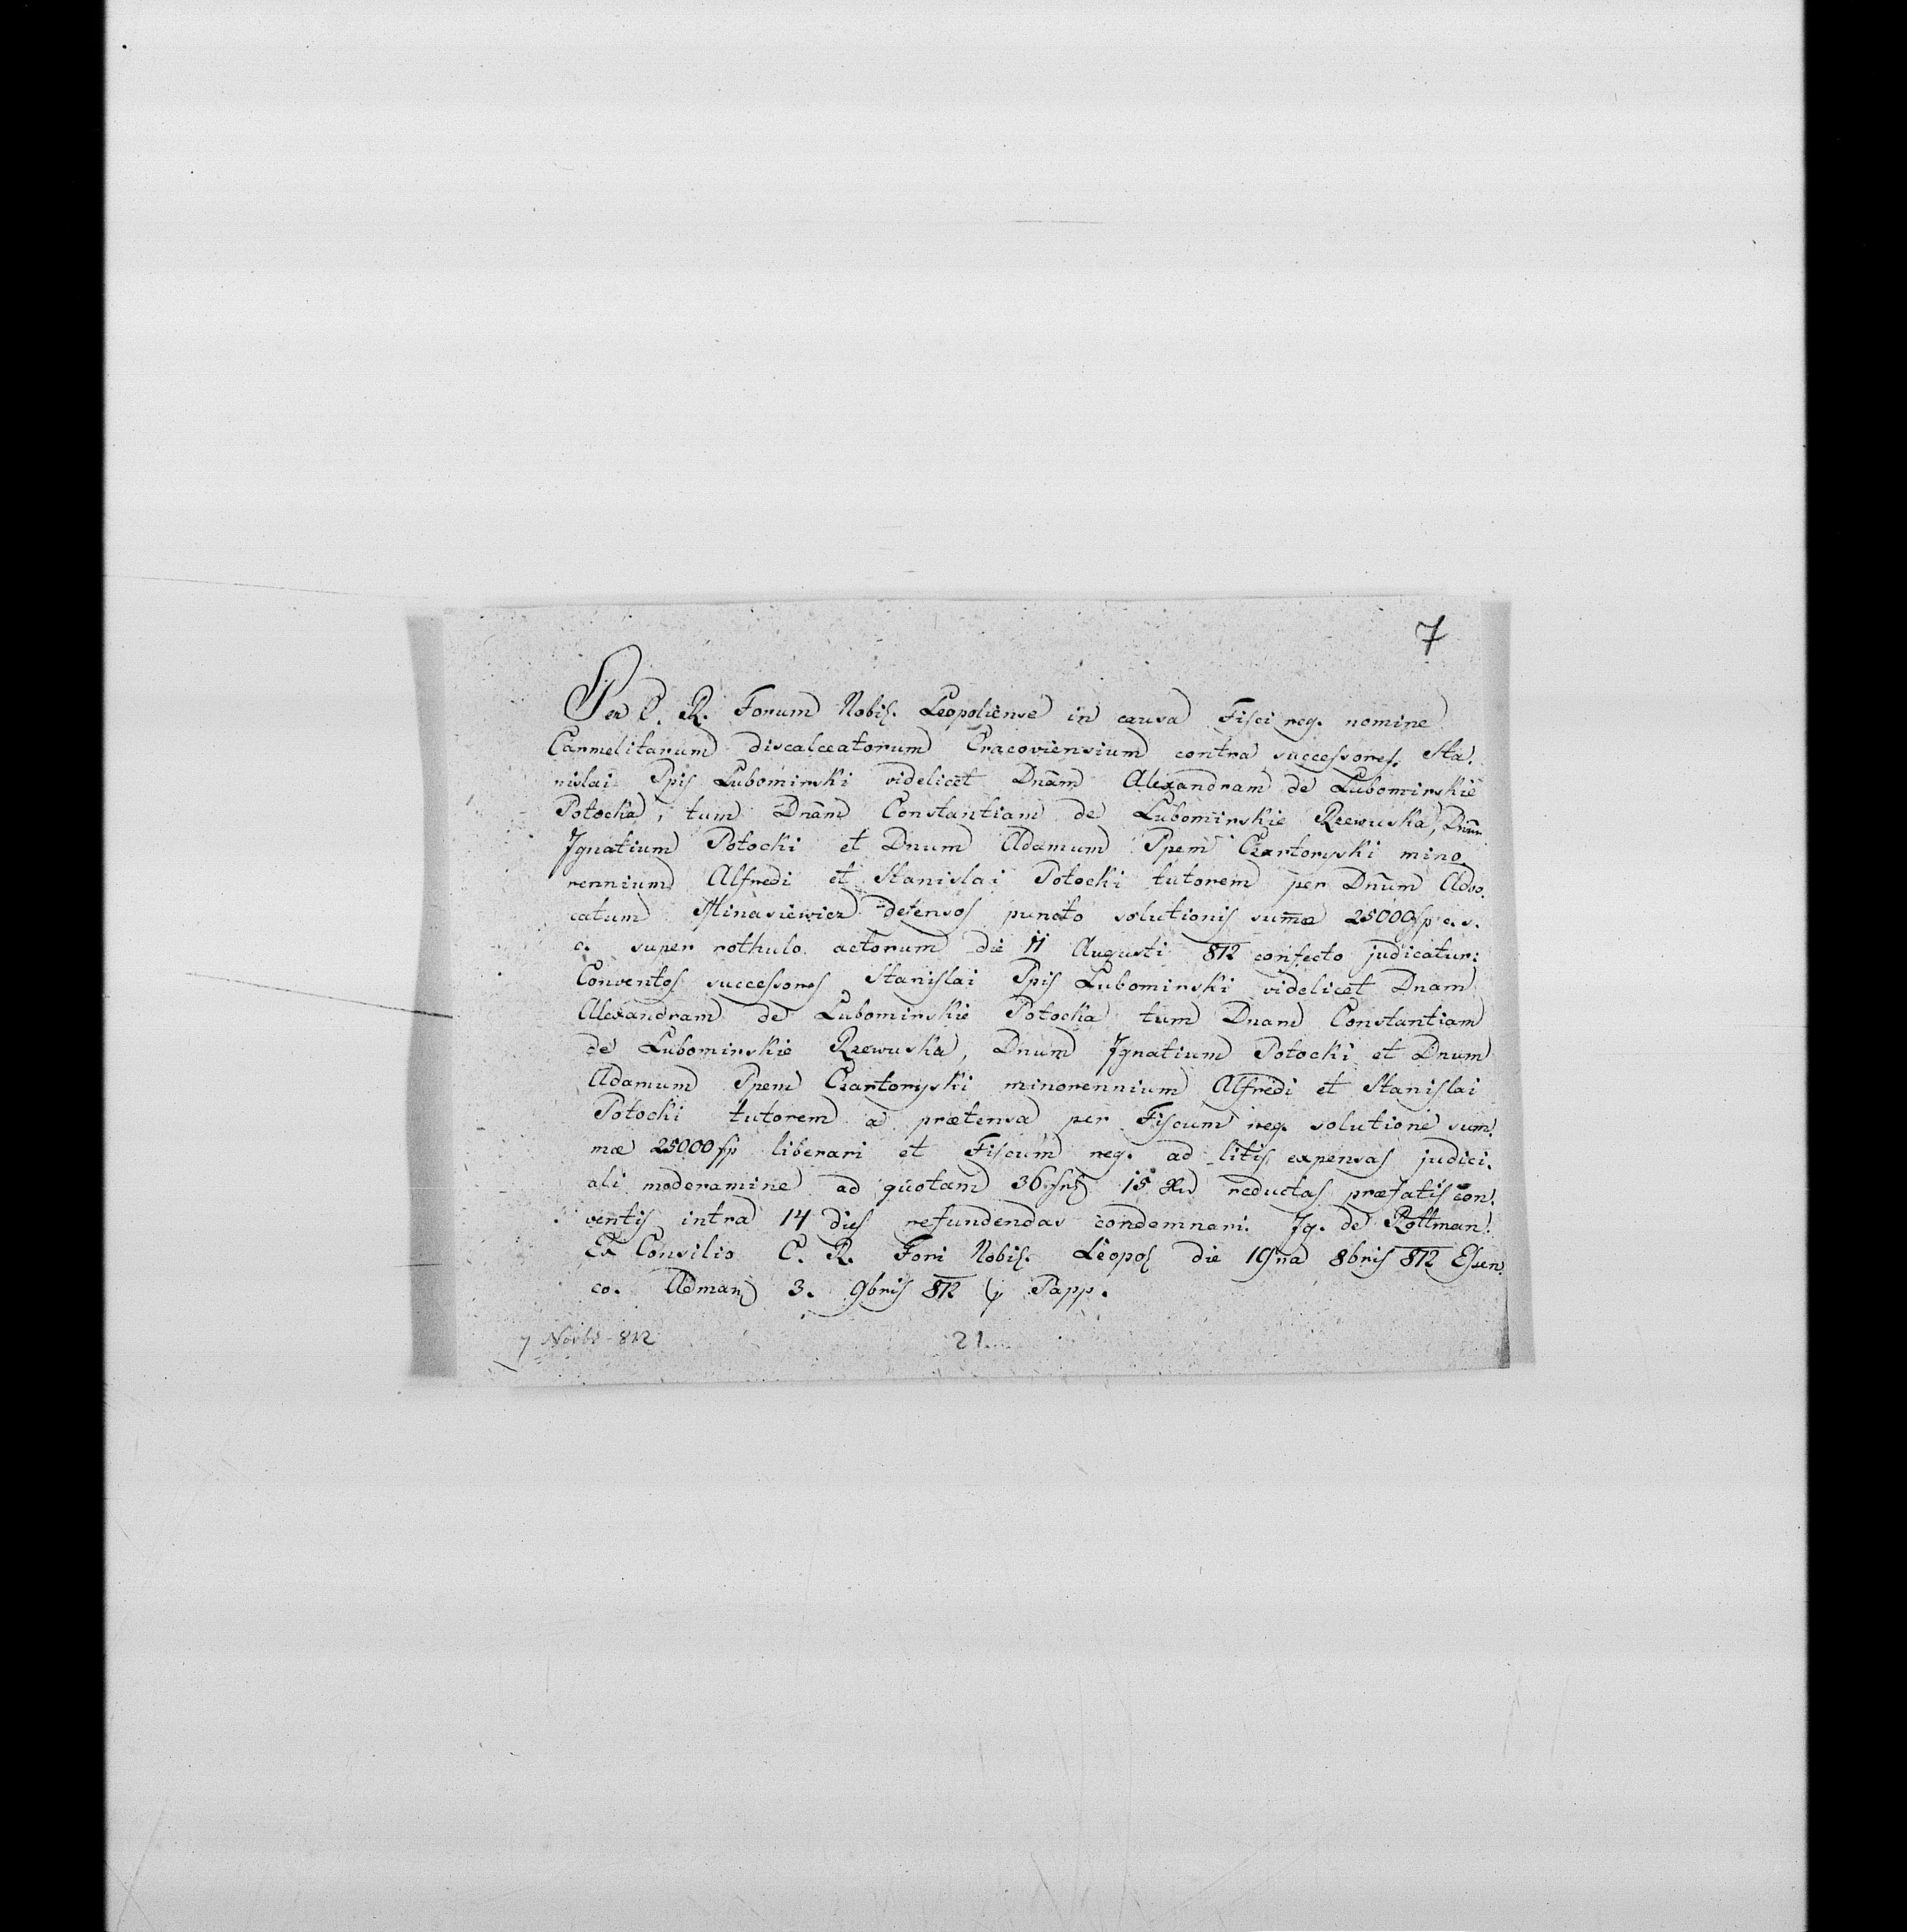 7
Per C. R. Forum Nobil. Leopoliense in causa Fisci reg. nomine
Carmelitarum discalceatorum Cracoviensium contra successores Sta.
nislai Ppis Lubomirski videlicet Dnam Alexandram de Lubomirskie
Potocka, tum Dnam Constantiam de Lubomirskie Rzewuska, Dnum
Ignatium Potocki et Dnum Adamum Ppem Czartoryski mino.
rennium Alfredi et Stanislai Potocki tutorem per Dnum Advo.
catum Minasiewicz defensos puncto solutionis sumae 25000 fp c. s.
c. super rothulo actorum die 11 Augusti 812 confecto judicatur:
Conventos successores Stanislai Ppis Lubomirski videlicet Dnam
Alexandram de Lubomirskie Potocka tum Dnam Constantiam
de Lubomirskie Rzewuska, Dnum Ignatium Potocki et Dnum
Adamum Ppem Czartoryski minorennium Alfredi et Stanislai
Potocki tutorem a praetensa per Fiscum reg. solutione sum.
mae 25000 fp liberari et Fiscum reg. ad litis expensas judici.
ali moderamine ad quotam 36 15 Xr reductas praefatis con.
ventis intra 14 dies refundendas condemnari. Ig. de Rottman.
Ex Consilio C. R. Fori Nobil. Leopol die 8bris 812
co. 3. 9bris 812 Papp.
7 Novbr 812
21